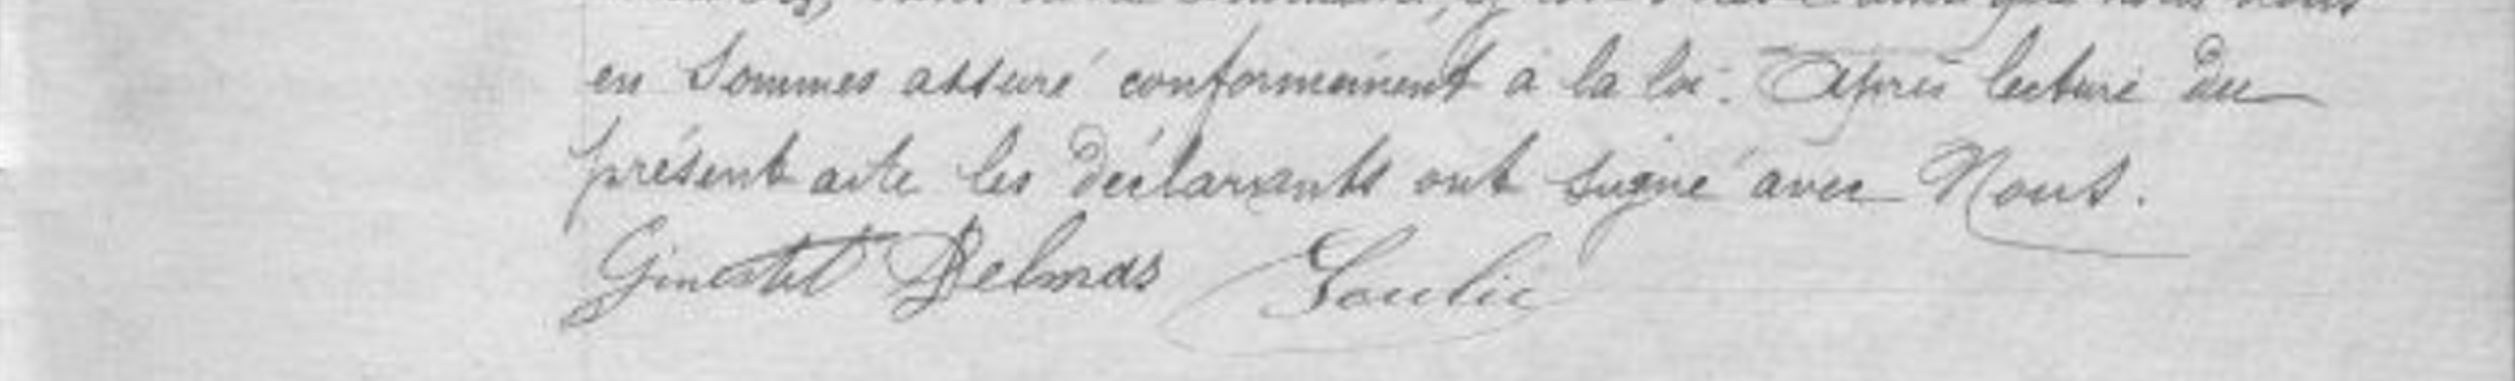 en Sommes assuré conformément à la loi. Après lecture du
présent acte les déclarants ont signé avec Nous.
Ginestet Delmas Soulié